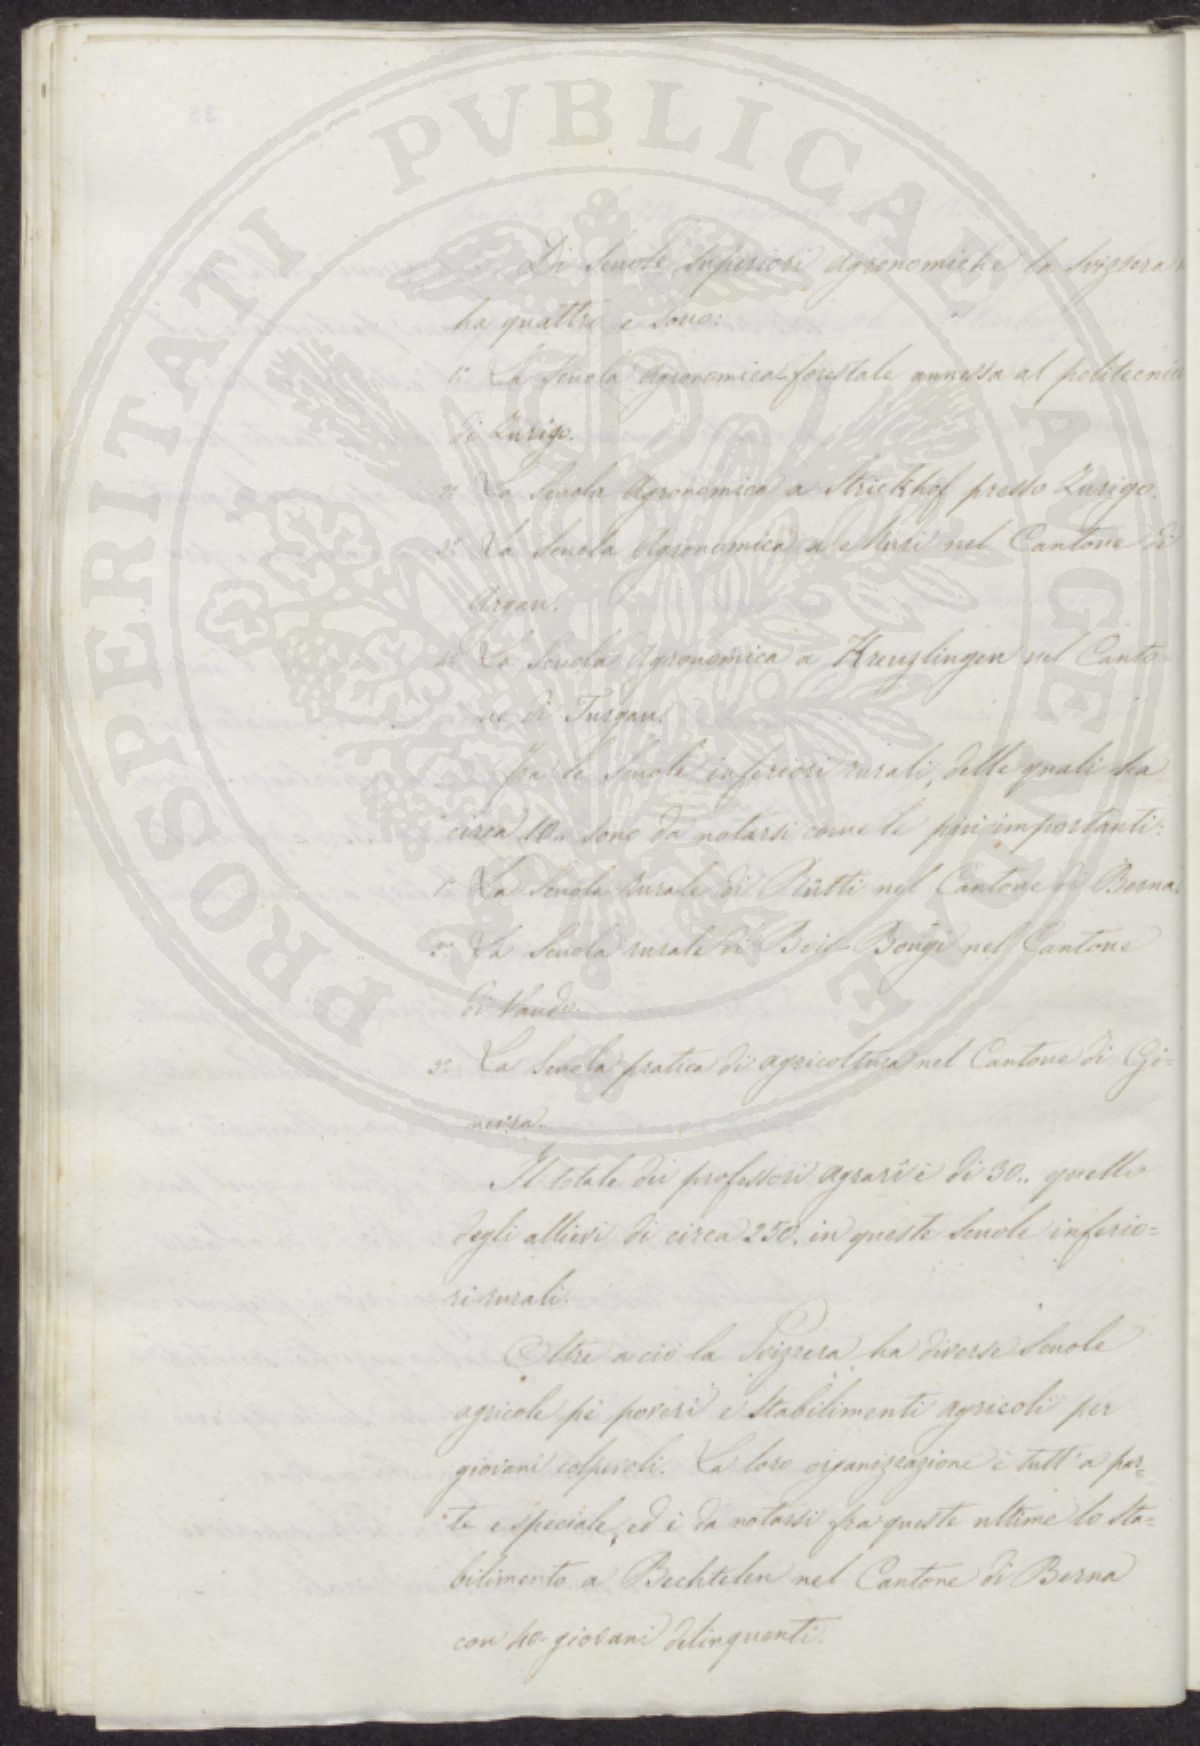 Di Scuole superiori Agronomiche la Svizzera
ha quattro e sono:
1º La Scuola Agronomica-forestale annessa al politecnico
di Zurigo.
2º La Scuola Agronomica a Strickhof presso Zurigo.
3º La Scuola Agronomica a Muri nel Cantone di
Argau.
4º La Scuola Agronomica a Kreuzlingen nel Canto-
ne di Turgau.
Fra le Scuole inferiori rurali, delle quali ha
circa 10.. sono da notarsi come le più importanti:
1º La Scuola rurale di Rütti nel Cantone di Berna
2º La Scuola rurale di Bois-Bougi nel Cantone
di Vaudo.
3º La Scuola pratica di agricoltura nel Cantone di Gi=
nevra.
Il totale dei professori agrari è di 30.. quello
degli allievi di circa 250. in queste Scuole inferio=
ri rurali.
Oltre a ciò la Svizzera ha diverse Scuole
agricole pei poveri e stabilimenti agricoli per
giovani colpevoli. La loro organizzazione è tutt'a par=
te e speciale, ed è da notarsi fra queste ultime lo sta=
bilimento a Bechtelen nel Cantone di Berna
con 40 giovani delinquenti.
PROSPERITATI PVBLICAE AVGENDAE